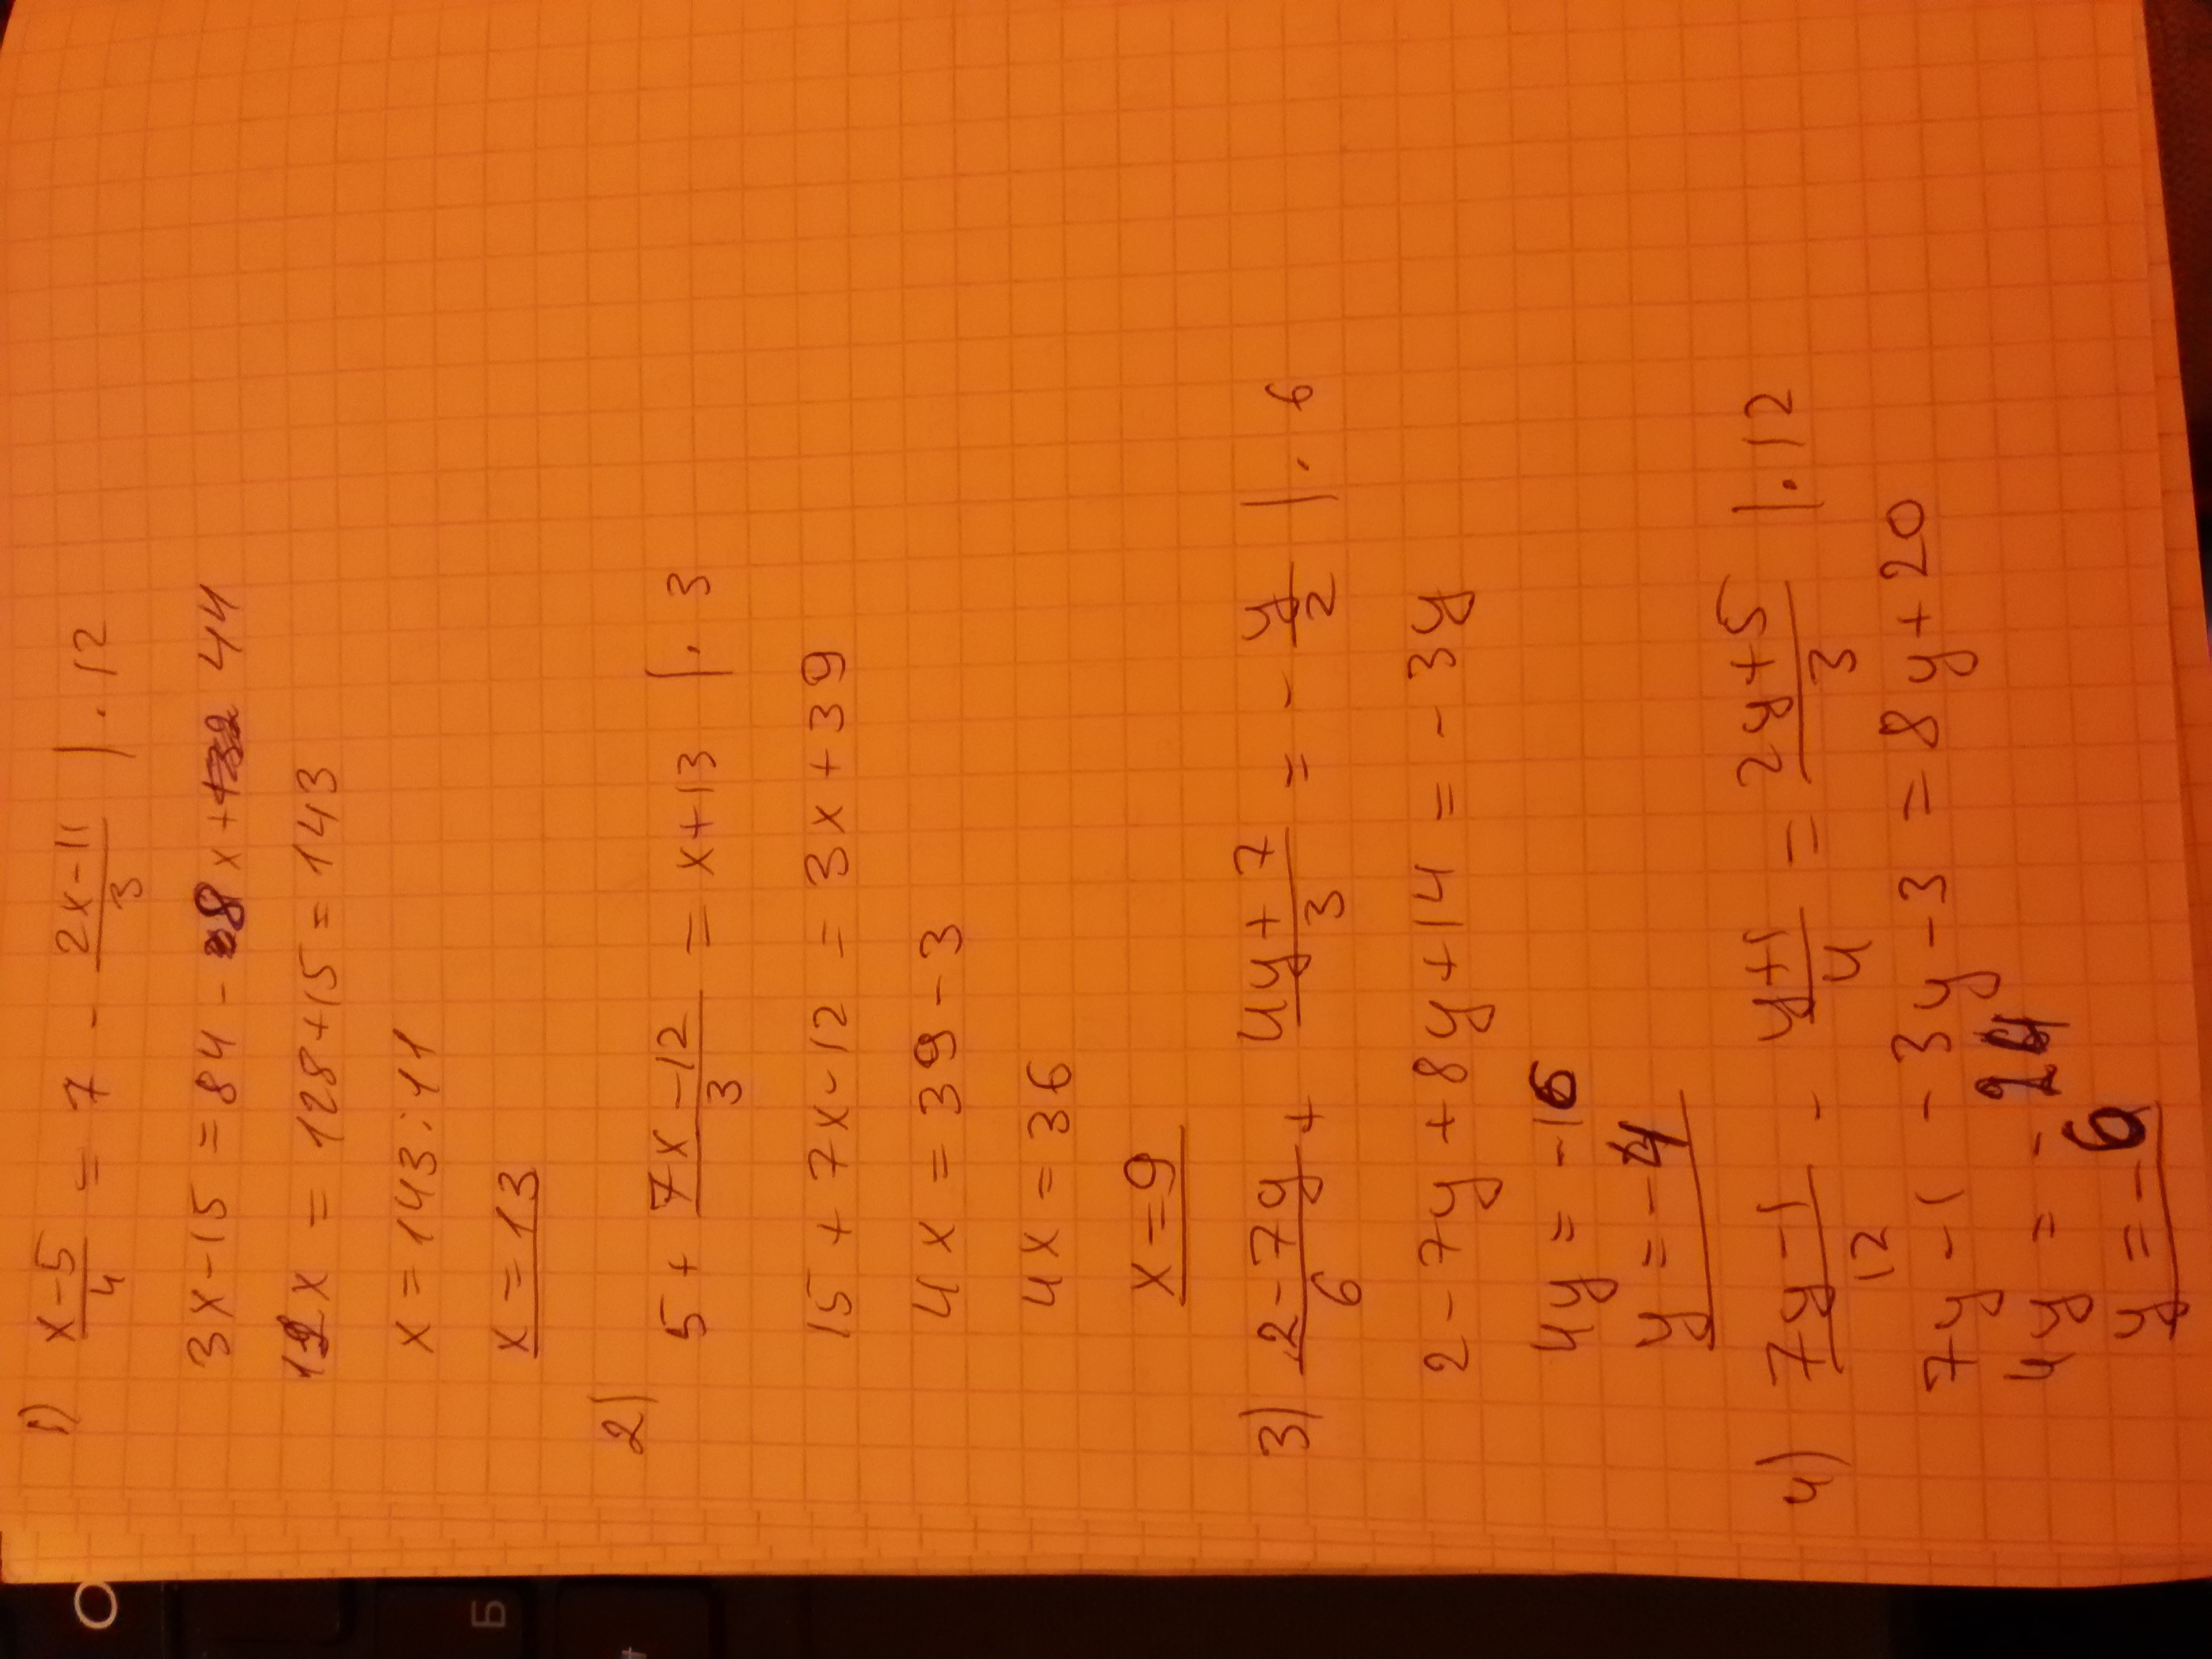 1) x-5/4 = 7 - 2x-11/3 |·12
3x-15 = 84-8x+ 44
11x = 128+15 = 143
x = 143:11
x = 13
2)
5 + 7x-12/3 = x+13 |·3
15 + 7x-12 = 3x+39
4x = 39-3
4x = 36
x = 9
3) 2-7y/6 + 4y+7/3 = - y/2 |·6
2-7y+8y+14 = -3y
4y = -16
y = -4
4) 7y-1/12 - y+1/4 = 2y+5/3 |·12
7y-1 - 3y-3 = 8y+20
4y = -24
y = -6
О
Б